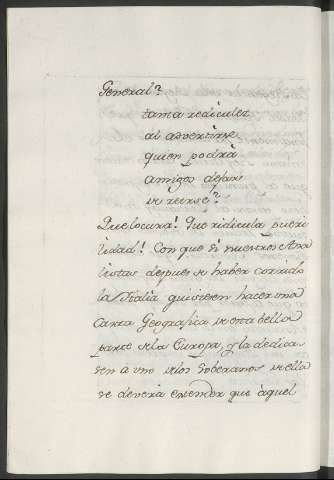 General?
tama redicules
al advertirse
quien podrà
amigos dejar
de reirse?
Que locura! Que ridicula pueri
lidad! Con que si nuestros Ana
listas despues de haber corrido
la Italia quisieren hacer una
Carta Geografica de esta bella
parte de la Europa, y la dedica
sen a uno de los Soberanos de ella
se deverà entender que àquel